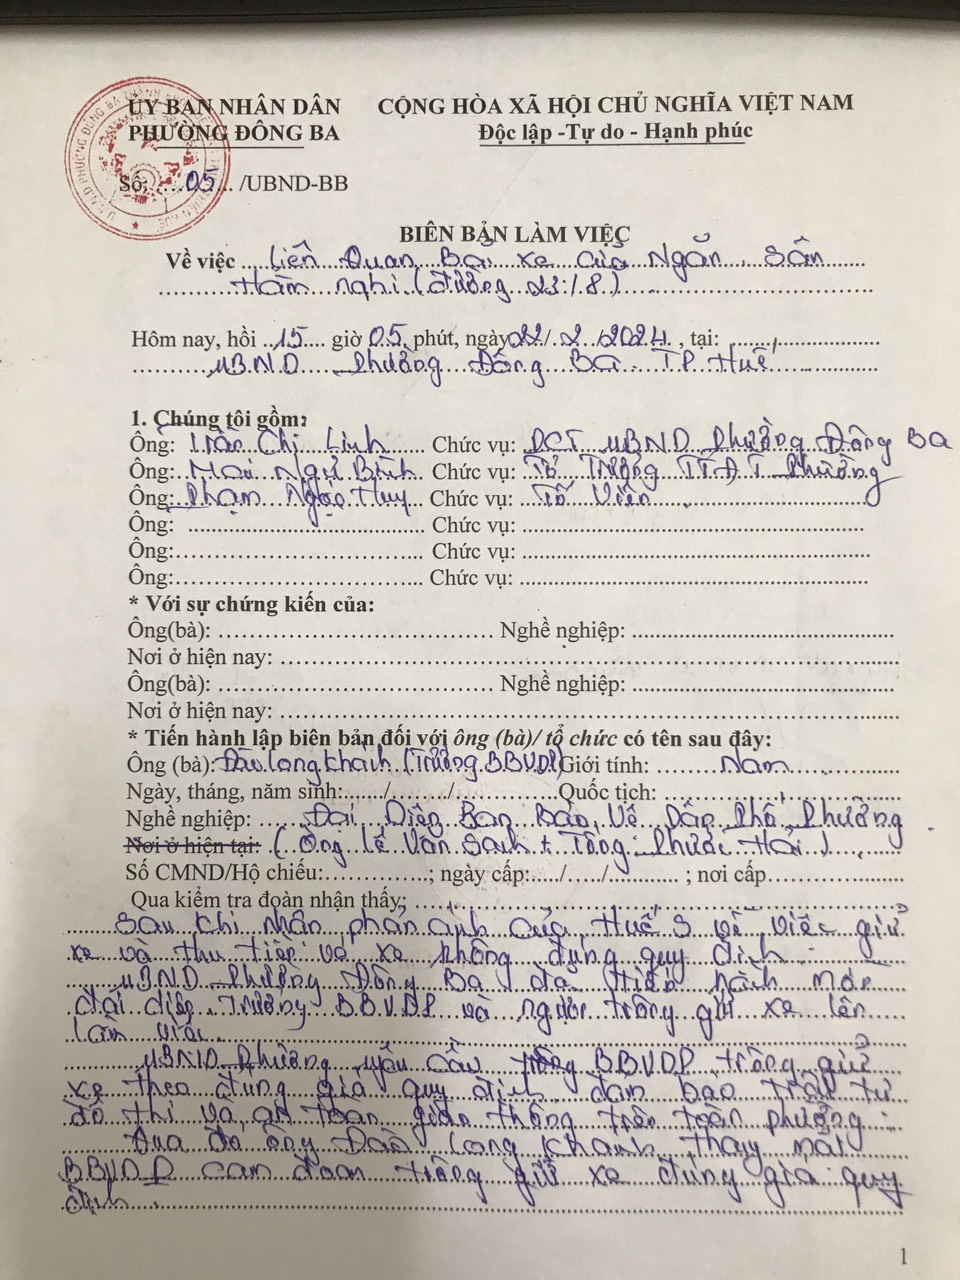 ỦY BAN NHÂN DÂN
PHƯỜNG ĐÔNG BA
CỘNG HÒA XÃ HỘI CHỦ NGHĨA VIỆT NAM
Độc lập -Tự do - Hạnh phúc
Số: .....05.... /UBND-BB
BIÊN BẢN LÀM VIỆC
Về việc ...Liên Quan Bãi xe của Ngân Sân
Hàm nghi (đường 23/8)
Hôm nay, hồi ..15.... giờ 05 phút, ngày 22/ 2 /2024 , tại:
UBND Phường Đông Ba TP Huế
1. Chúng tôi gồm:
Ông: Trần Chi Linh Chức vụ: PCT UBND Phường Đông Ba
Ông: Mai Ngự Bình Chức vụ: Tổ Trưởng TTĐT Phường
Ông: Phạm Ngọc Huy Chức vụ: Tổ Viên
Ông: ................................ Chức vụ: ................................
Ông:................................ Chức vụ: ................................
Ông:................................ Chức vụ: ................................
* Với sự chứng kiến của:
Ông(bà): ................................ Nghề nghiệp: ................................
Nơi ở hiện nay: ................................
Ông(bà): ................................ Nghề nghiệp: ................................
Nơi ở hiện nay: ................................
* Tiến hành lập biên bản đối với ông (bà)/ tổ chức có tên sau đây:
Ông (bà): Đào Long Khánh (Trưởng BBVDP) Giới tính: ........Nam
Ngày, tháng, năm sinh:......./........./.................Quốc tịch: ................
Nghề nghiệp: Đại Diện Ban Bảo Vệ Dân Phố Phường
Nơi ở hiện tại: (Ông Lê Văn Sanh + Tống Phước Hải)
Số CMND/Hộ chiếu:..................; ngày cấp:...../...../............ ; nơi cấp................
Qua kiểm tra đoàn nhận thấy:
Sau khi nhận phản ánh của Huế S về việc giữ
xe và thu tiền vé xe không đúng quy định
UBND Phường Đông Ba đã tiến hành mời
đại diện Trưởng BBVDP và người trông giữ xe lên
làm việc.
UBND Phường yêu cầu trông BBVDP trông giữ
xe theo đúng giá quy định đảm bảo trật tự
đô thị và an toàn giao thông trên toàn phường.
Qua đó ông Đào Long Khánh thay mặt
BBVDP cam đoan trông giữ xe đúng giá quy
định.
1